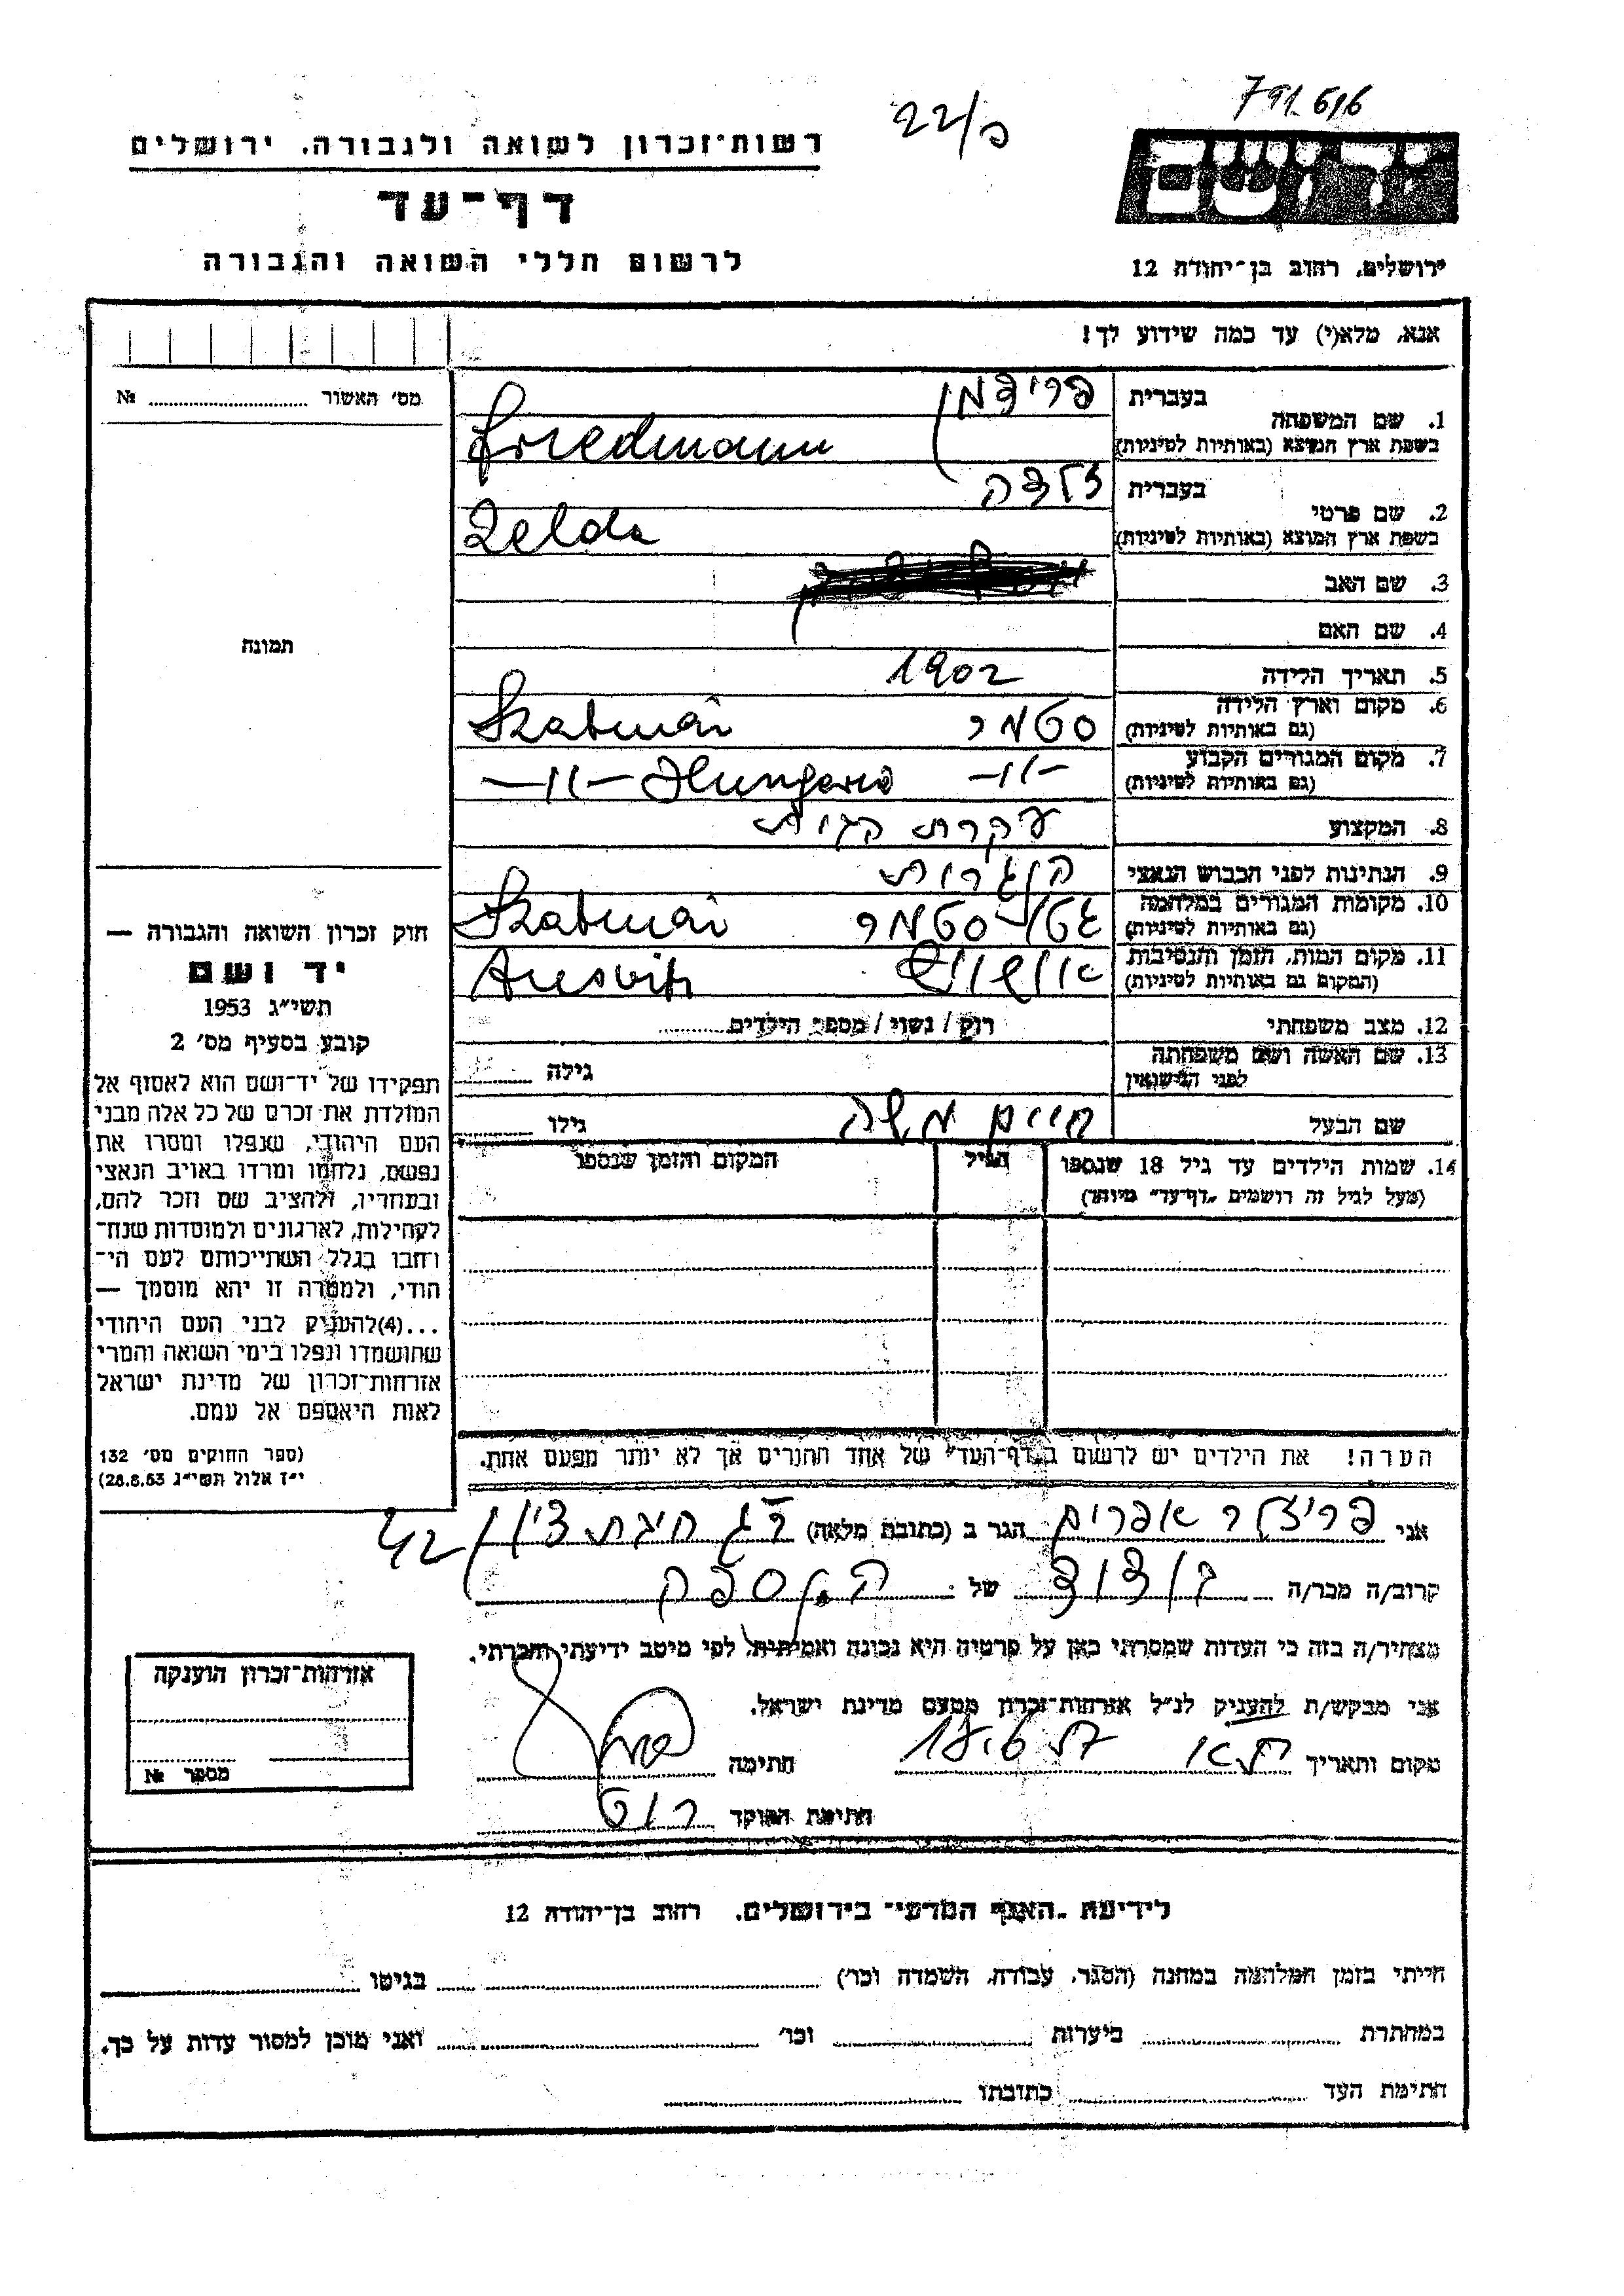 791.616
22/כ
יד ושם
ירושלים, רחוב בן־יהודה 12
רשות־זכרון לשואה ולגבורה, ירושלים
דף־עד
לרשום חללי השואה והגבורה
אנא, מלא(י) עד כמה שידוע לך!
מס׳ האשור № 
תמונה
1. שם המשפחה
בעברית פרידמן
בשפת ארץ המוצא (באותיות לטיניות) Friedmann
2. שם פרטי
בעברית זלדה
בשפת ארץ המוצא (באותיות לטיניות) Zelda
3. שם האב
4. שם האם
5. תאריך הלידה 1902
6. מקום וארץ הלידה סטמר Szatmár
(גם באותיות לטיניות)
7. מקום המגורים הקבוע -"- -"- Hungaria
(גם באותיות לטיניות)
8. המקצוע עקרת הבית
9. הנתינות לפני הכבוש הנאצי הונגרית
10. מקומות המגורים במלחמה גטו סטמר Szatmár
(גם באותיות לטיניות)
11. מקום המות, הזמן והנסיבות אושוויץ Ausvitz
(המקום גם באותיות לטיניות)
12. מצב משפחתי רוק / נשוי / מספר הילדים
13. שם האשה ושם משפחתה גילה
לפני הנישואין
שם הבעל חיים משה גילו
14. שמות הילדים עד גיל 18 שנספו הגיל המקום והזמן שנספו
(מעל לגיל זה רושמים „דף־עד” מיוחד)
הערה! את הילדים יש לרשום ב„דף־העד” של אחד ההורים אך לא יותר מפעם אחת.
חוק זכרון השואה והגבורה —
יד ושם
תשי״ג 1953
קובע בסעיף מס׳ 2
תפקידו של יד־ושם הוא לאסוף אל
המולדת את זכרם של כל אלה מבני
העם היהודי, שנפלו ומסרו את
נפשם, נלחמו ומרדו באויב הנאצי
ובעוזריו, ולהציב שם וזכר להם,
לקהילות, לארגונים ולמוסדות שנח־
רחבו בגלל השתייכותם לעם הי־
הודי, ולמטרה זו יהא מוסמך —
...(4)להעניק לבני העם היהודי
שהושמדו ונפלו בימי השואה והמרי
אזרחות־זכרון של מדינת ישראל
לאות היאספם אל עמם.
(ספר החוקים מס׳ 132
י״ז אלול תשי״ג 28.8.53)
אני פריזלר אפרים הגר ב (כתובת מלאה) רג חיבת ציון 42
קרוב/ה מכר/ה בן דוד של הנספה
מצהיר/ה בזה כי העדות שמסרתי כאן על פרטיה היא נכונה ואמיתית, לפי מיטב ידיעתי והכרתי.
אני מבקש/ת להעניק לנ״ל אזרחות־זכרון מטעם מדינת ישראל.
מקום ותאריך חתימה
חתימת הפוקד רוט
אזרחות־זכרון הוענקה
מספר №
לידיעת „האגף המדעי” בירושלים, רחוב בן־יהודה 12
הייתי בזמן המלחמה במחנה (הסגר, עבודה, השמדה וכו׳) בגיטו
במחתרת ביערות וכו׳ ואני מוכן למסור עדות על כך.
חתימת העד כתובתו